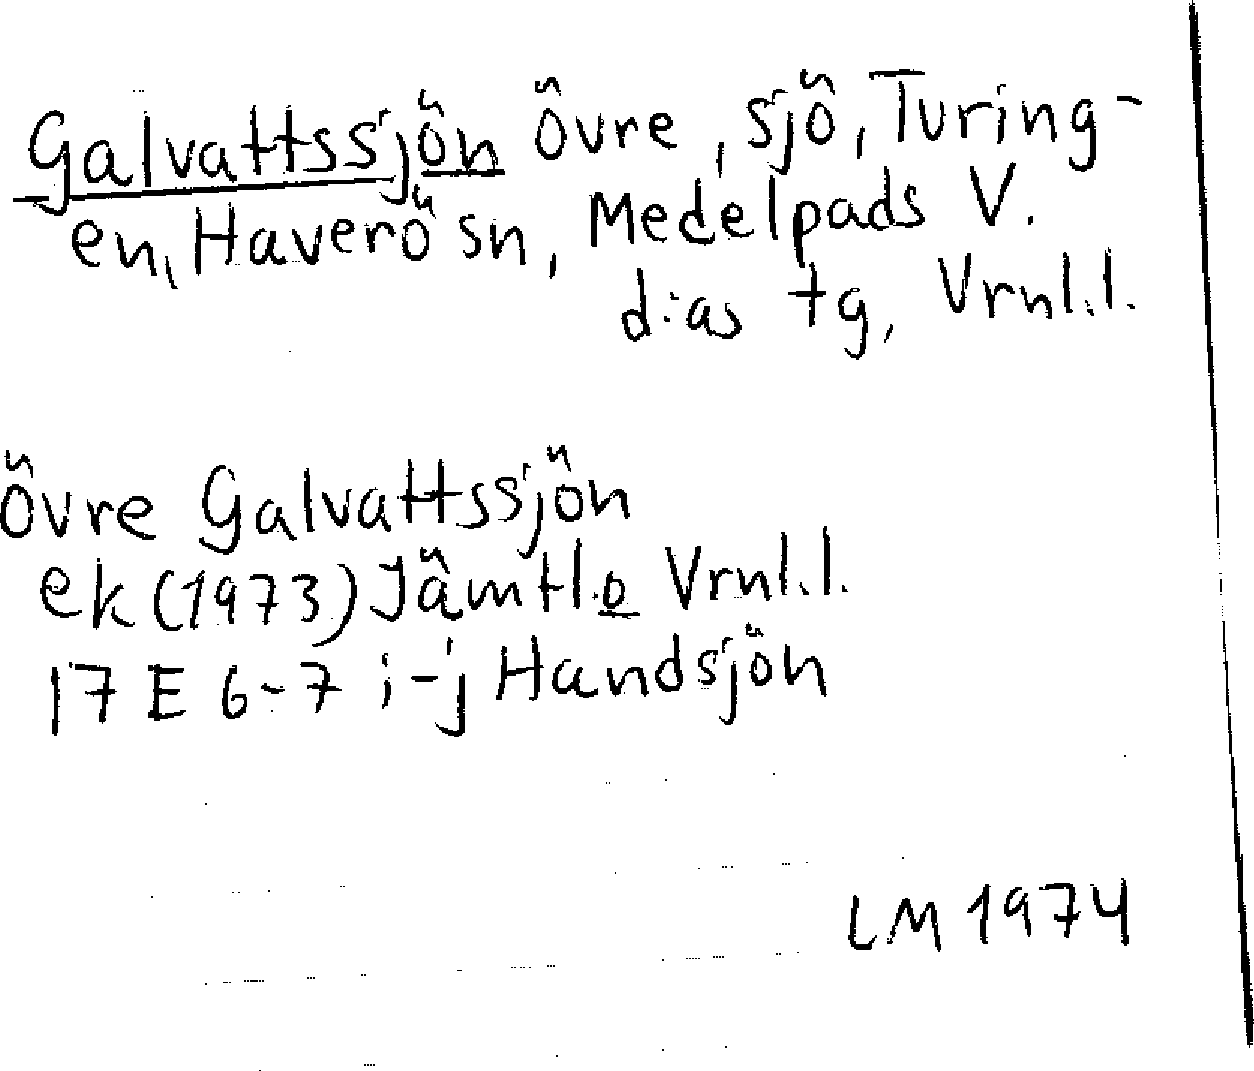 Galvattssjön Övre, sjö, Turing-
en, Haverö sn, Medelpads V.
d:as tg, Vrnl.l.
Övre Galvattssjön
ek (1973) Jämtl.o Vrnl.l.
17 E 6-7 i-j Handsjön
LM 1974